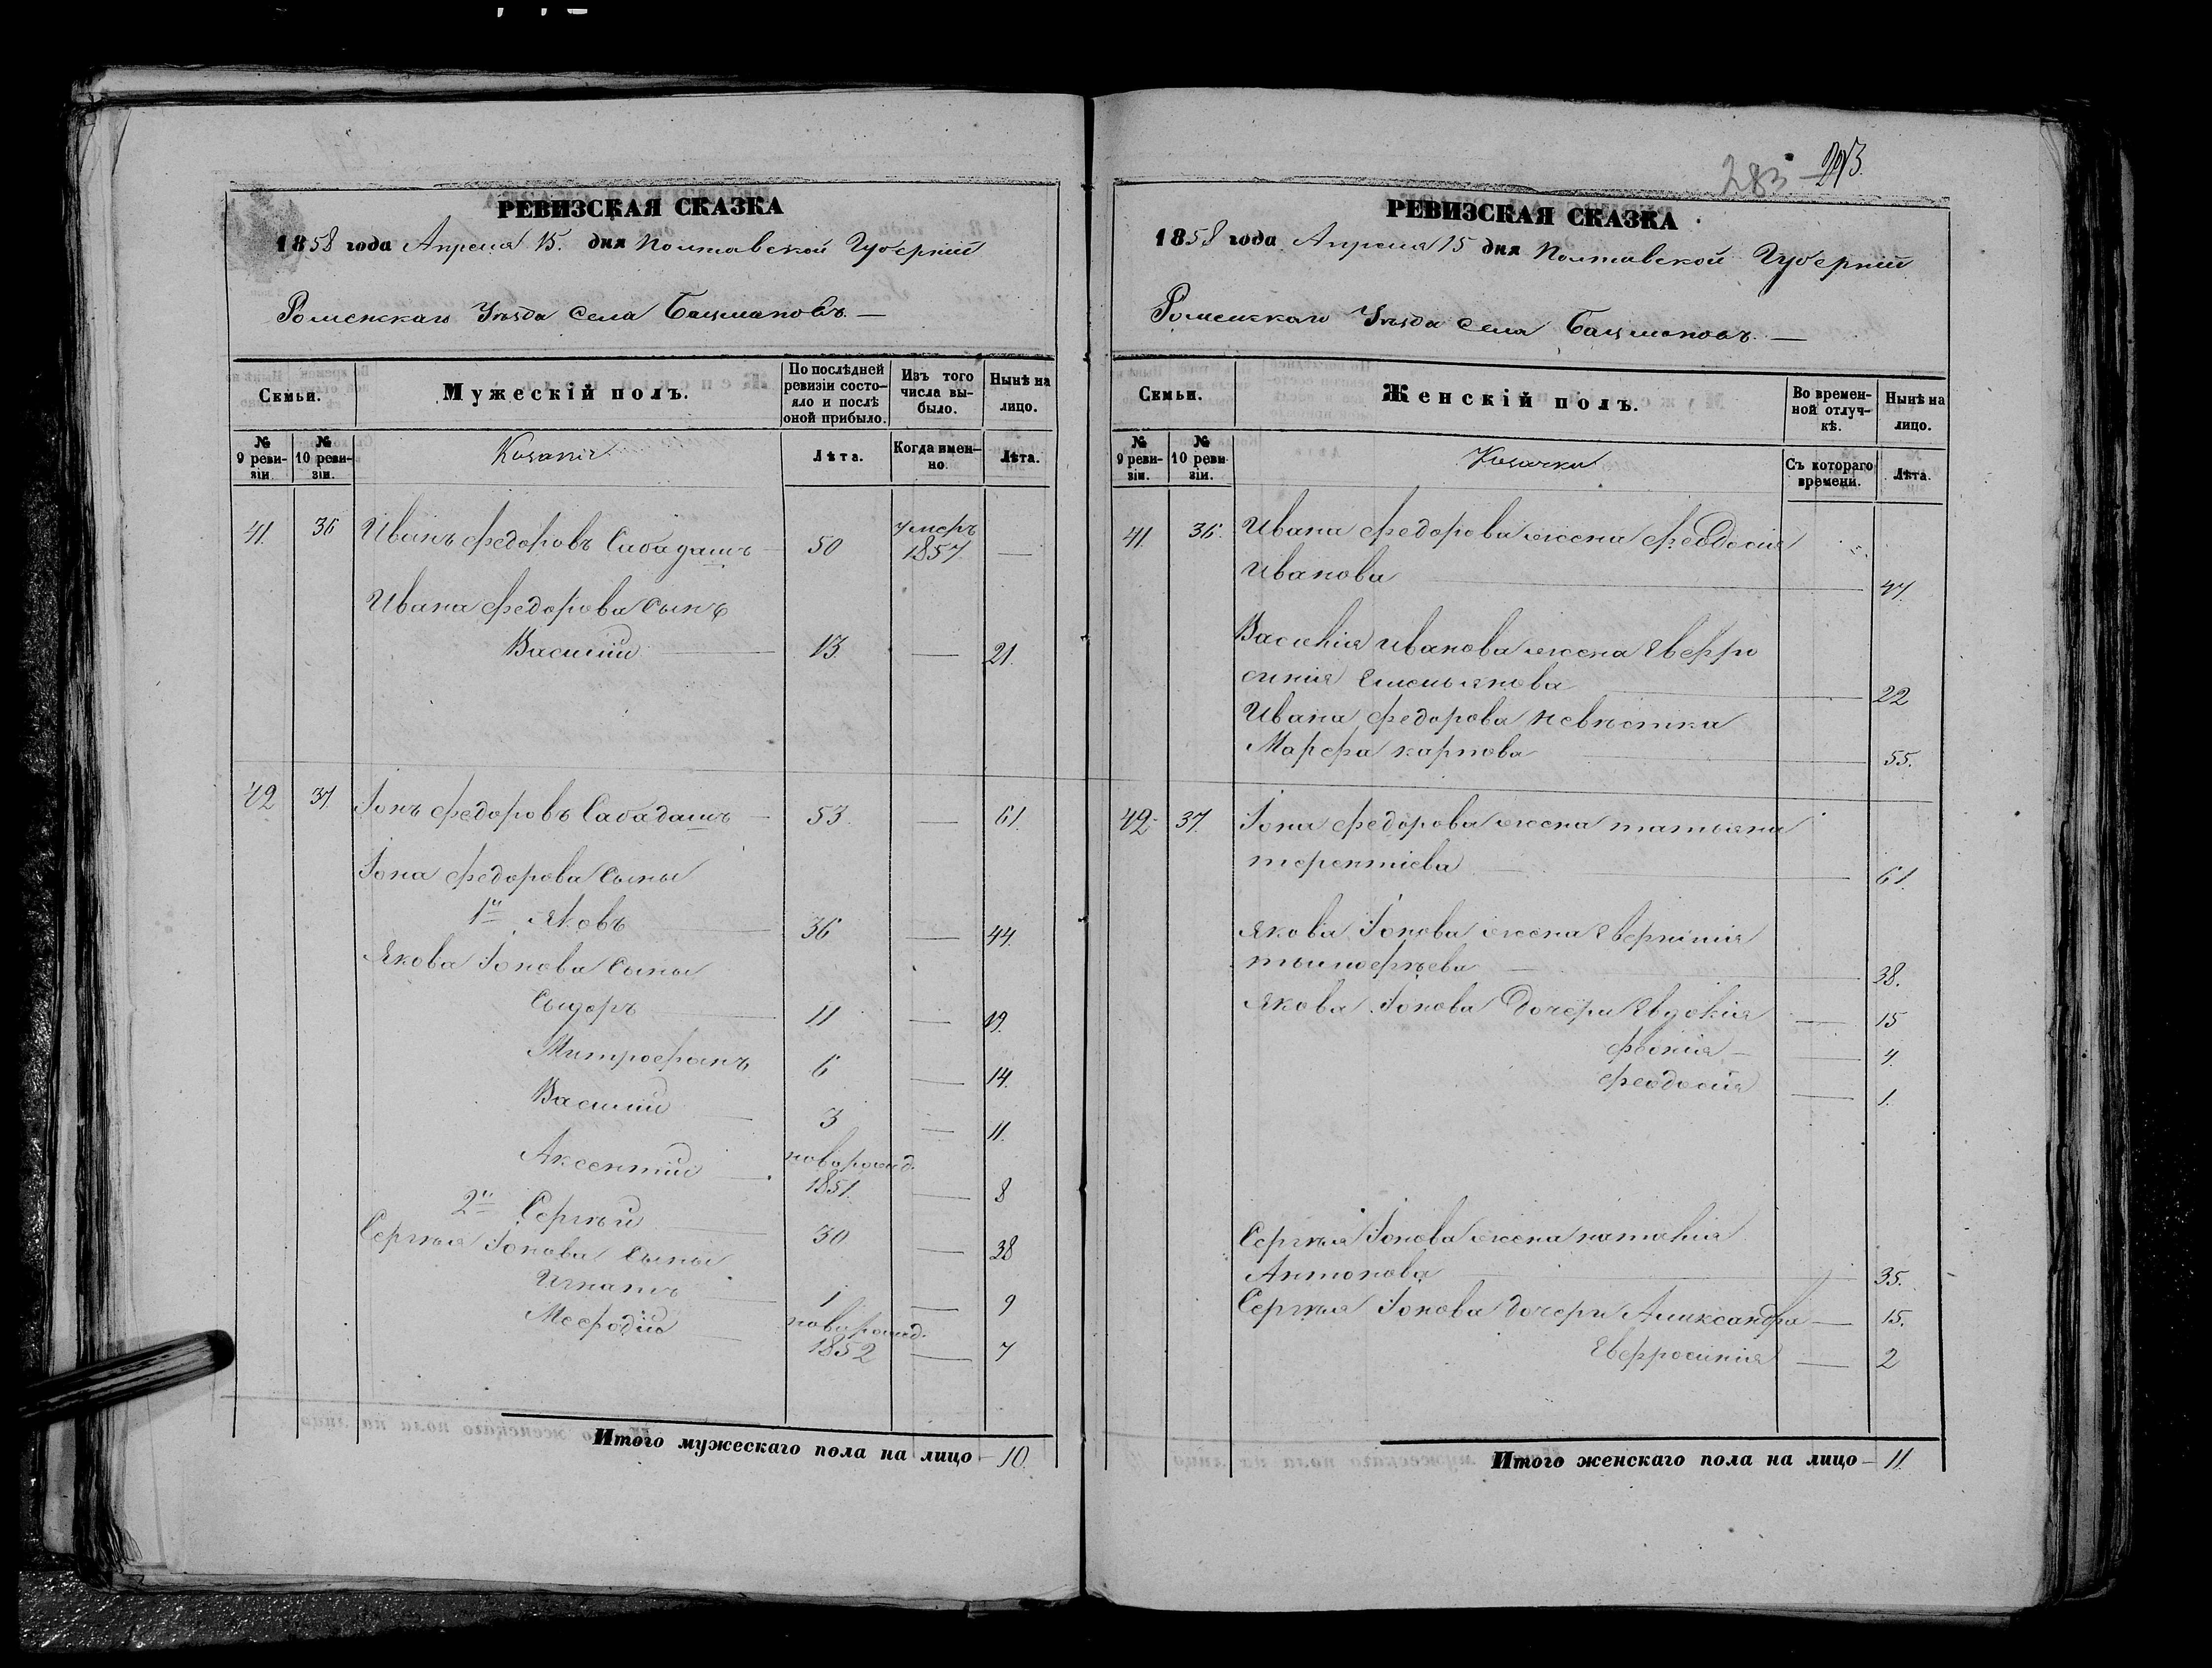 РЕВИЗСКАЯ СКАЗКА
1858 года Апреля 15. дня Полтавской Губерніи
Роменскаго Уѣзда Села Бацмановъ. —
Семьи.
Мужескій полъ.
По послѣдней ревизіи состояло и послѣ оной прибыло.
Изъ того числа выбыло.
Нынѣ на лицо.
№ 9 ревизіи.
№ 10 ревизіи.
Козаки
Лѣта.
Когда именно.
Лѣта.
41. 36 Иванъ Федоровъ Сабадашъ — 50 умеръ 1857 —
Ивана Федорова Сынъ
Василій — 13. — 21.
42 37 Іонъ Федоровъ Сабадашъ — 53. — 61.
Іона Федорова Сыны
1й Яковъ — 36 — 44.
Якова Іонова Сыны
Сыдоръ — 11 — 19.
Митрофанъ 6 — 14.
Василій — 3 — 11.
Аксентий — новорожд. 1851. — 8
2й Сергѣй — 30 — 38
Сергѣя Іонова Сыны
Игнатъ — 1 — 9
Мефодій — новорожд. 1852 — 7
Итого мужескаго пола на лицо — 10.
283 —
РЕВИЗСКАЯ СКАЗКА
1858 года Апреля 15 дня Полтавской Губерніи
Роменскаго Уѣзда Села Бацмановъ. —
Семьи.
Женскій полъ.
Во временной отлучкѣ.
Нынѣ на лицо.
№ 9 ревизіи.
№ 10 ревизіи.
Козачки
Съ котораго времени.
Лѣта.
41. 36. Ивана Федорова жена Феодосія
Иванова — 47.
Василія Иванова жена Евфро
синія Емельянова — 22
Ивана Федорова невѣстка
Марфа Карпова — 55.
42. 37. Іона Федорова жена Татьяна
Терентіева — 61.
Якова Іонова жена
Тымофѣева — 38.
Якова Іонова Дочери Евдокія — 15
— 4.
Феодосія — 1.
Сергѣя Іонова жена Наталія
Антонова — 35.
Сергѣя Іонова дочери Александра — 15.
Евфросинія — 2
Итого женскаго пола на лицо — 11.